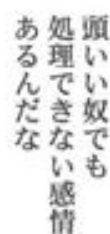 頭いい奴でも
処理できない感情
あるんだな